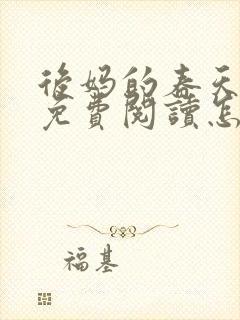 後媽的春天
免費閱讀怎
福基